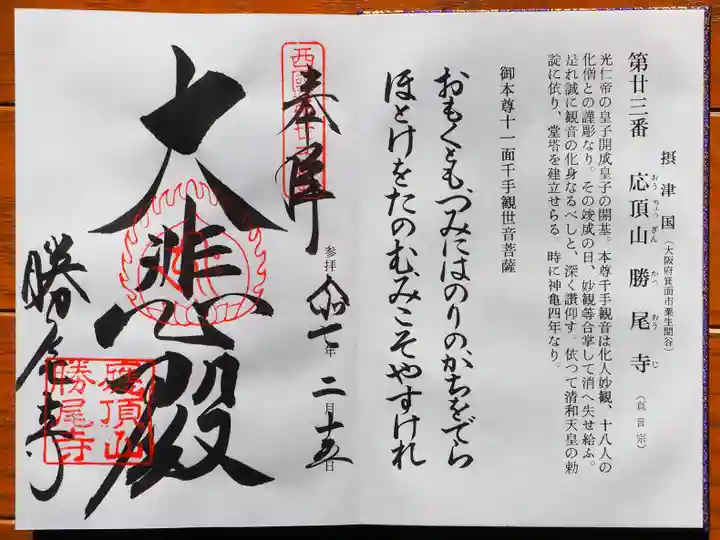 第廿三番
摂津国
(大阪府箕面市粟生間谷)
応頂山 勝尾寺
おうちょうざん かつおうじ
(真言宗)
光仁帝の皇子開成皇子の開基。本尊千手観音は化人妙観、十八人の
化僧との謹彫なり。その竣成の日、妙観等合掌して消へ失せ給ふ。
是れ誠に観音の化身なるべしと、深く讃仰す。依つて清和天皇の勅
諚に依り、堂塔を建立せらる。時に神亀四年なり。
御本尊十一面千手観世音菩薩
おもくともつみにはのりのかちをでら
ほとけをたのむみこそやすけれ
奉拝
参拝 令和七年二月十五日
大悲殿
勝尾寺
應頂山
勝尾寺